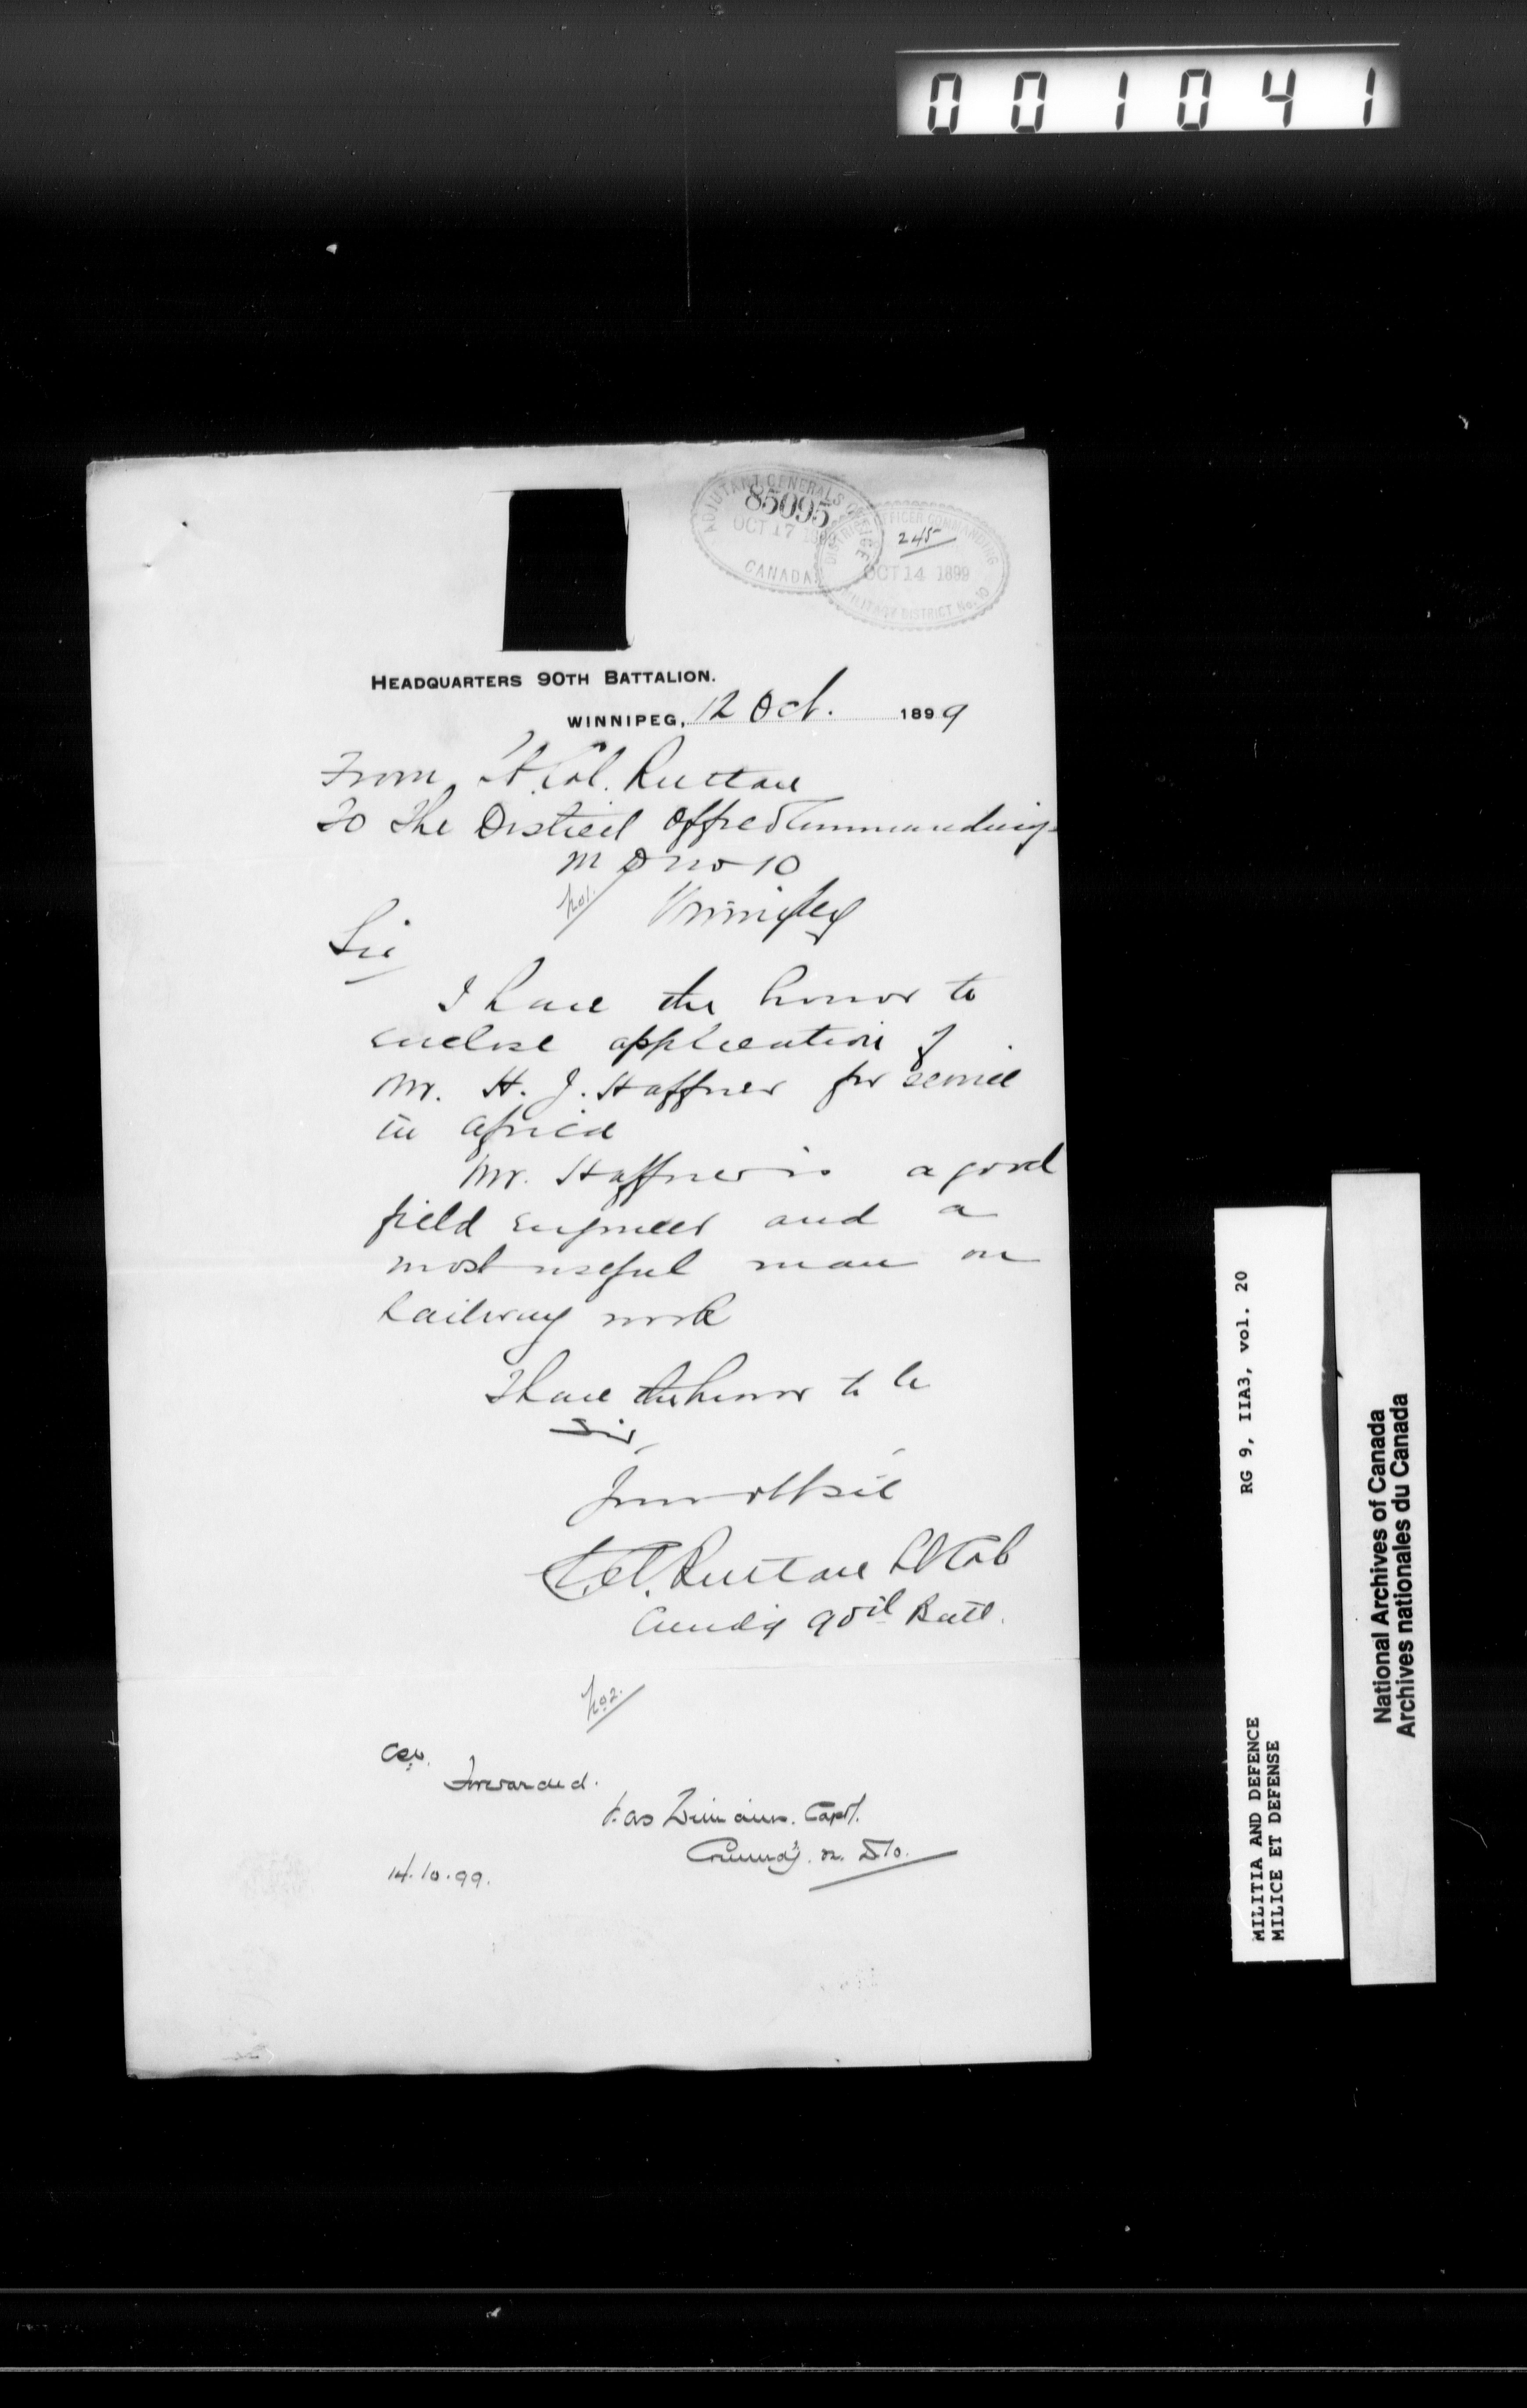 001041
ADJUTANT GENERALS OFFICE
85095
OCT 17 1899
CANADA
DISTRICT OFFICER COMMANDING
245
OCT 14 1899
MILITARY DISTRICT No. 10
HEADQUARTERS 90TH BATTALION.
WINNIPEG, 12 Oct. 1899
From Lt. Col. Ruttan
To The District Officer Commanding
M D No 10
No 1.
Winnipeg
Sir
I have the honor to
enclose application of
Mr. H. J. Haffner for service
in Africa
Mr. Haffner is a good
field engineer and a
most useful man on
Railway work
I have the honor to be
Sir,
Your obt
Ruttan Lt Col
Comdg 90th Batt.
No 2.
Forwarded.
Capt.
Commdg. M. D 10.
14.10.99.
RG 9, IIA3, vol. 20
MILITIA AND DEFENCE
MILICE ET DEFENSE
National Archives of Canada
Archives nationales du Canada